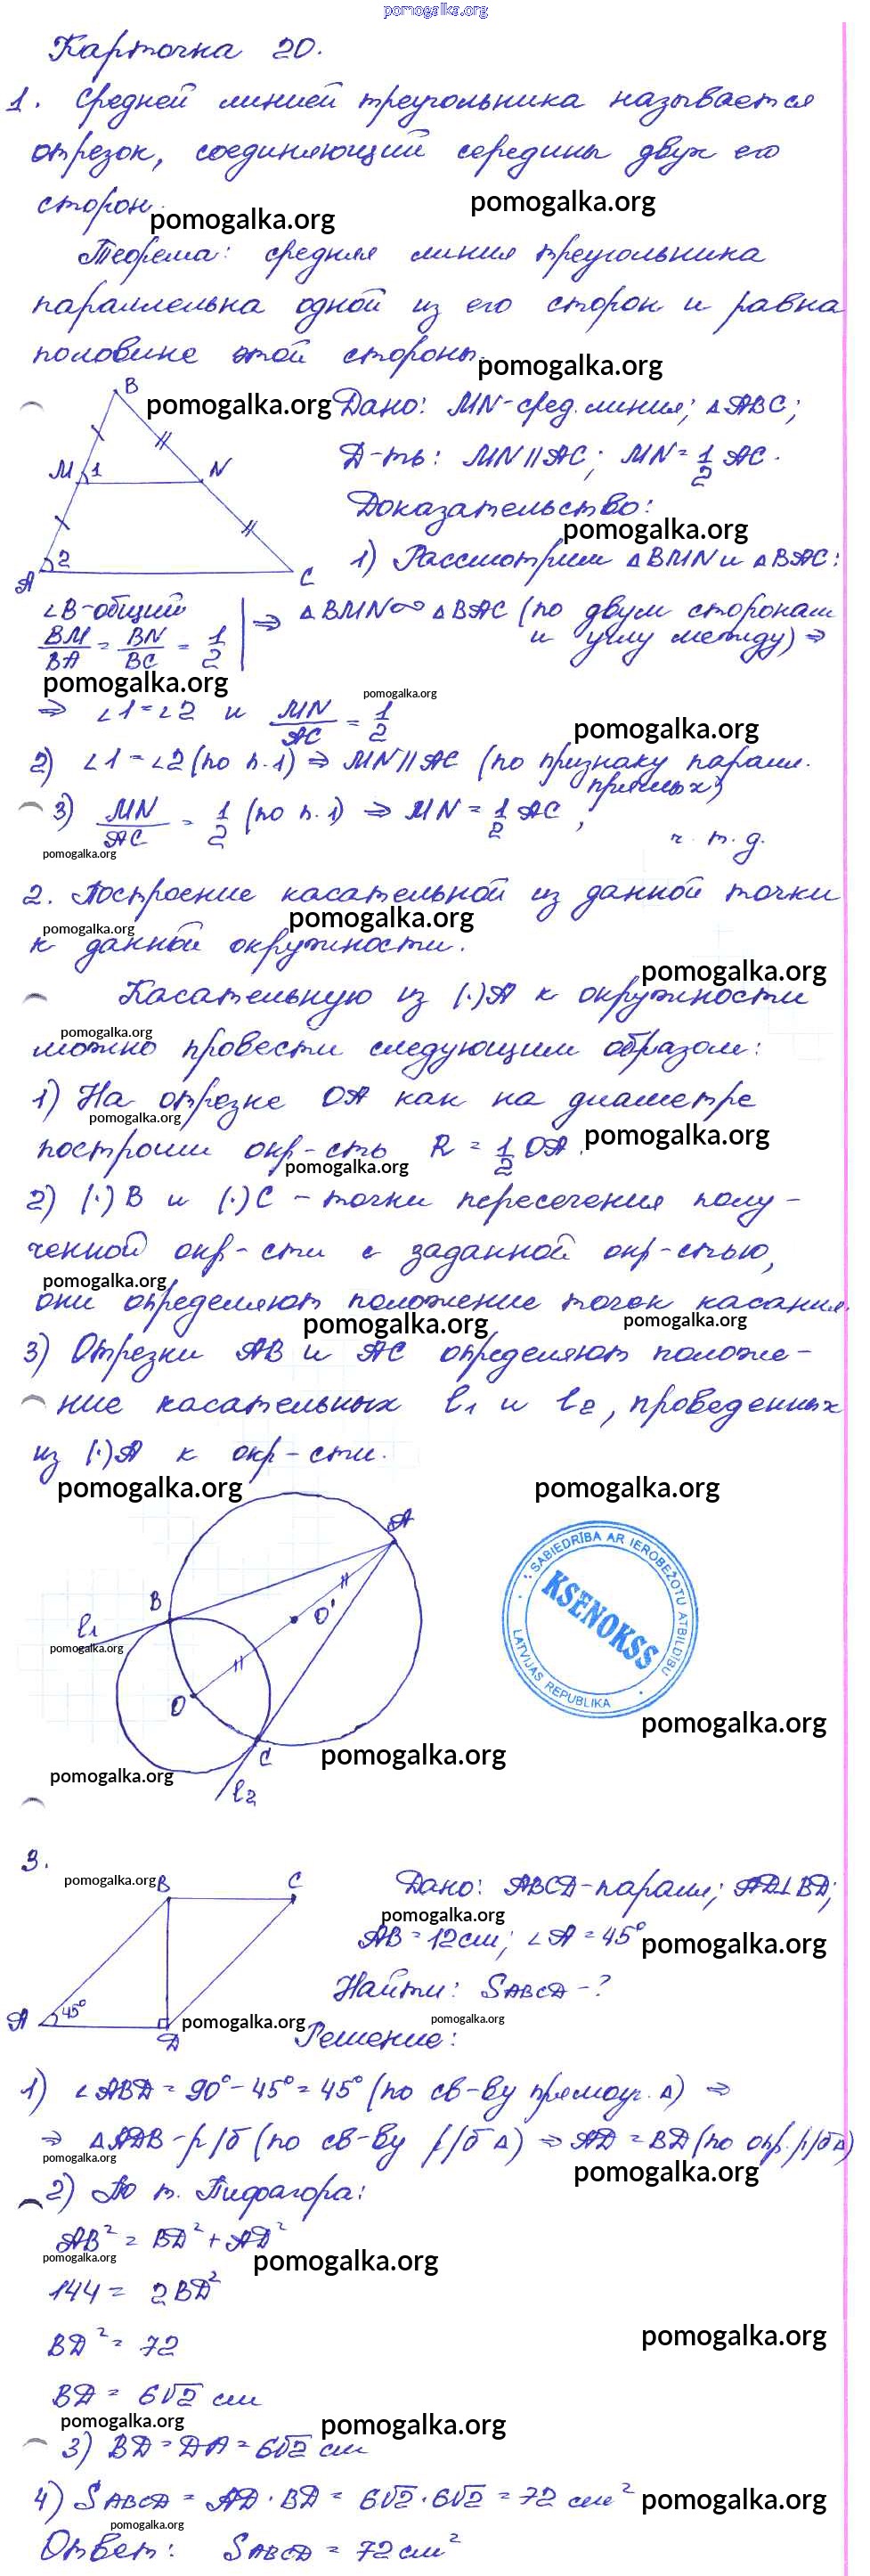 pomogalka.org
Карточка 20.
1. Средней линией треугольника называется
отрезок, соединяющий середины двух его
сторон.
pomogalka.org
pomogalka.org
Теорема: средняя линия треугольника
параллельна одной из его сторон и равна
половине этой стороны.
pomogalka.org
B
pomogalka.org
Дано: MN-сред. линия; △ABC;
Д-ть: MN||AC; MN = 1/2 AC.
M 1 N
Доказательство:
pomogalka.org
A 2 C
1) Рассмотрим △BMN и △BAC:
∠B-общий
BM/BA = BN/BC = 1/2
⇒ △BMN∞△BAC (по двум сторонам
и углу между) ⇒
pomogalka.org
pomogalka.org
⇒ ∠1=∠2 и MN/AC = 1/2
pomogalka.org
2) ∠1=∠2 (по п.1) ⇒ MN||AC (по признаку паралл.
прямых)
3) MN/AC = 1/2 (по п.1) ⇒ MN = 1/2 AC,
ч.т.д.
pomogalka.org
2. Построение касательной из данной точки
pomogalka.org
pomogalka.org
к данной окружности.
pomogalka.org
Касательную из (·)A к окружности
pomogalka.org
можно провести следующим образом:
1) На отрезке OA как на диаметре
pomogalka.org
построим окр-сть R = 1/2 OA.
pomogalka.org
pomogalka.org
2) (·)B и (·)C - точки пересечения полу-
ченной окр-сти с заданной окр-стью,
pomogalka.org
они определяют положение точек касания.
pomogalka.org
pomogalka.org
3) Отрезки AB и AC определяют положе-
ние касательных l₁ и l₂, проведенных
из (·)A к окр-сти.
pomogalka.org
pomogalka.org
A
B
O'
l₁
pomogalka.org
O
C
l₂
SABIEDRĪBA AR IEROBEŽOTU ATBILDĪBU
KSENOKSS
LATVIJAS REPUBLIKA
pomogalka.org
pomogalka.org
pomogalka.org
3.
pomogalka.org
B C
Дано: ABCD-паралл; AD⊥BD;
pomogalka.org
AB = 12см; ∠A = 45°
pomogalka.org
Найти: SABCD - ?
A 45° D
pomogalka.org
pomogalka.org
Решение:
1) ∠ABD = 90° - 45° = 45° (по св-ву прямоуг. △) ⇒
⇒ △ADB - р/б (по св-ву р/б △) ⇒ AD = BD (по опр. р/б△)
pomogalka.org
pomogalka.org
2) По т. Пифагора:
AB² = BD² + AD²
pomogalka.org
pomogalka.org
144 = 2BD²
BD² = 72
pomogalka.org
BD = 6√2 см
pomogalka.org
pomogalka.org
3) BD = DA = 6√2 см
4) SABCD = AD · BD = 6√2 · 6√2 = 72 см²
pomogalka.org
pomogalka.org
Ответ: SABCD = 72 см²